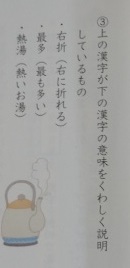 ③上の漢字が下の漢字の意味をくわしく説明
しているもの
・右折（右に折れる）
・最多（最も多い）
・熱湯（熱いお湯）